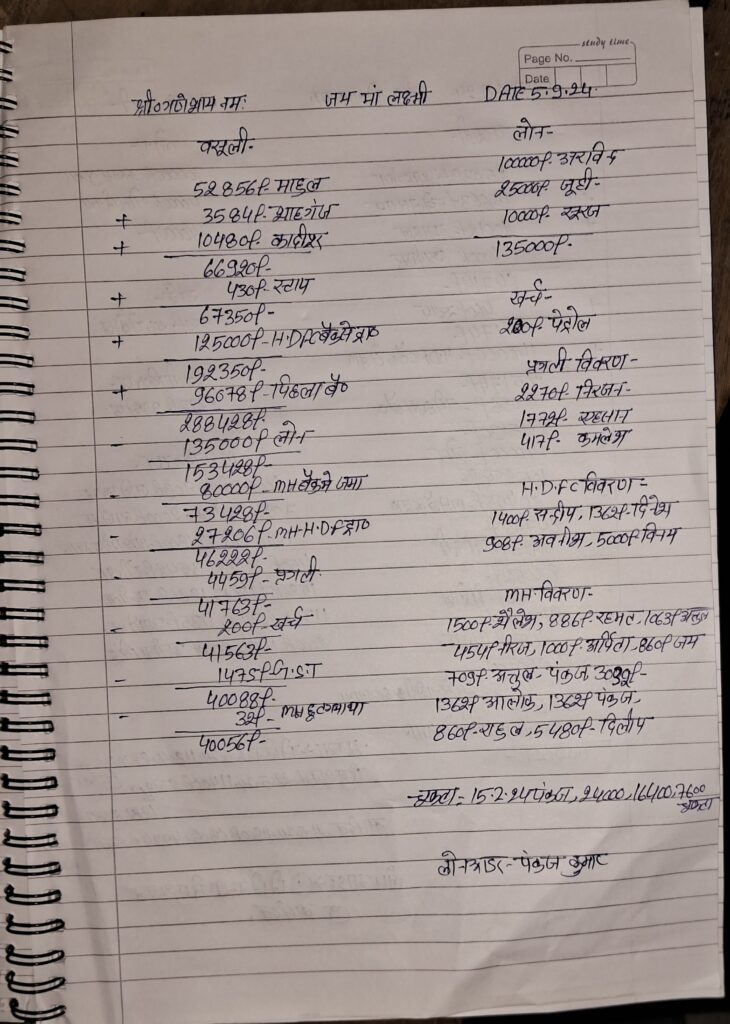 study time
Page No.
Date
श्री०गणेशाय नमः जय मां लक्ष्मी DATE 5.9.24
वसूली-
52856/- माहुल
+ 3584/- शाहगंज
+ 10480/-
66920/-
+ 430/- स्टाप
67350/-
+ 125000/- H.DFC बैंक से ड्रा०
192350/-
+ 96078/- पिछला बै०
288428/-
- 135000/- लोन
153428/-
- 80000/- MH बैंक मे जमा
73428/-
- 27206/- MH-H.DF ड्रा०
46222/-
- 4459/-
41763/-
- 200/- खर्च
41563/-
- 1475/- G.S.T
40088/-
- 32/- MH
40056/-
लोन-
100000/- अरविन्द
25000/- जूही-
10000/- सूरज
135000/-
खर्च-
200/- पेट्रोल
विवरण-
2270/- निरंजन-
1772/-
417/- कमलेश
H.D.FC विवरण-
1400/- सन्दीप, 1362/- दिनेश
908/- अवनीश, 5000/- विनय
MH-विवरण-
1500/- शैलेश, 886/- रहमत, 1063/- अतुल
454/- नीरज, 1000/- अर्पिता, 860/- जय
709/- अतुल- पंकज 3039/-
1362/- आलोक, 1362/- पंकज,
860/- राहुल, 5480/- दिलीप
15.2.24 पंकज, 24000, 16400, 7600
पंकज कुमार